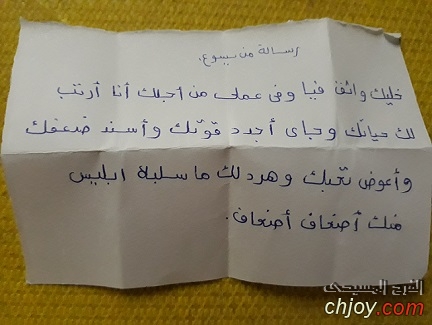 رسالة من يسوع.
خليك واثق فيا وفى عملى من أجلك أنا أرتب
لك حياتك وجاى أجدد قوتك وأسند ضعفك
وأعوض تعبك وهرد لك ما سلبة ابليس
منك أضعاف أضعاف.
الفرح المسيحى
chjoy.com